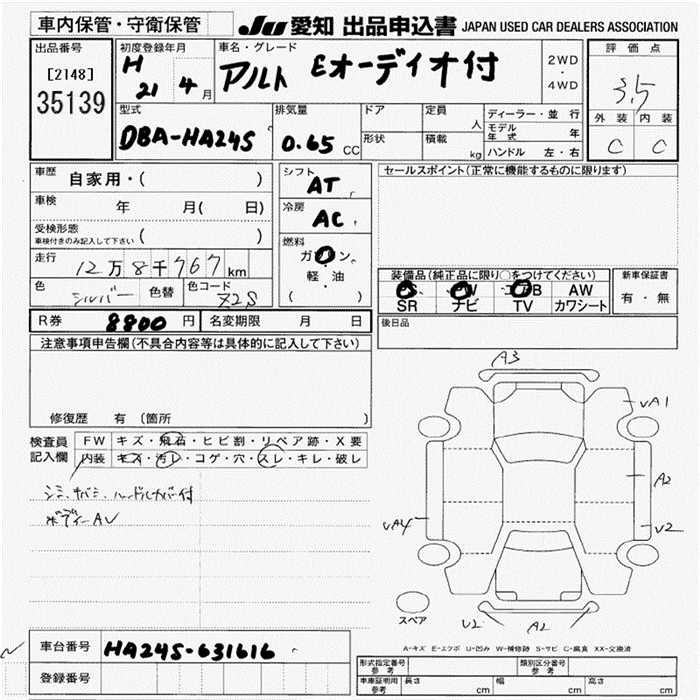 車内保管・守衛保管
JU 愛知 出品申込書 JAPAN USED CAR DEALERS ASSOCIATION
出品番号
[2148]
35139
初度登録年月
H
21 4月
車名・グレード
アルト Eオーディオ付
2WD
・
4WD
評価点
3.5
外装 内装
C C
型式
DBA-HA24S
排気量
0.65 CC
ドア
形状
定員 人
積載 kg
ディーラー・並行
モデル年式 年
ハンドル 左・右
車歴 自家用・( )
車検 年 月( 日)
受検形態
車検付きのみ記入して下さい ( )
走行 12万8千767km
色 シルバー 色替 色コード Z2S
シフト
AT
冷房
AC
燃料
ガソリン
軽・油
( )
セールスポイント(正常に機能するものに限ります)
装備品(純正品に限り○をつけてください)
PS PW エアB AW
SR ナビ TV カワシート
新車保証書
有・無
R券 8800円 名変期限 月 日
後日品
注意事項申告欄(不具合内容等は具体的に記入して下さい)
修復歴 有 (箇所 )
検査員
記入欄
FW キズ・飛石・ヒビ割・リペア跡・X要
内装 キズ・汚レ・コゲ・穴・スレ・キレ・破レ
シミ、キバミ、ハンドルカバー付
ボディーAU
A3
UA1
A2
U2
UA4
U2
A2
スペア
A-キズ E-エクボ U-凹み W-補修跡 S-サビ C-腐食 XX-交換済
車台番号 HA24S-631616
登録番号
形式指定番号
参考
類別区分番号
参考
車庫証明用
参考
長さ cm
幅 cm
高さ cm